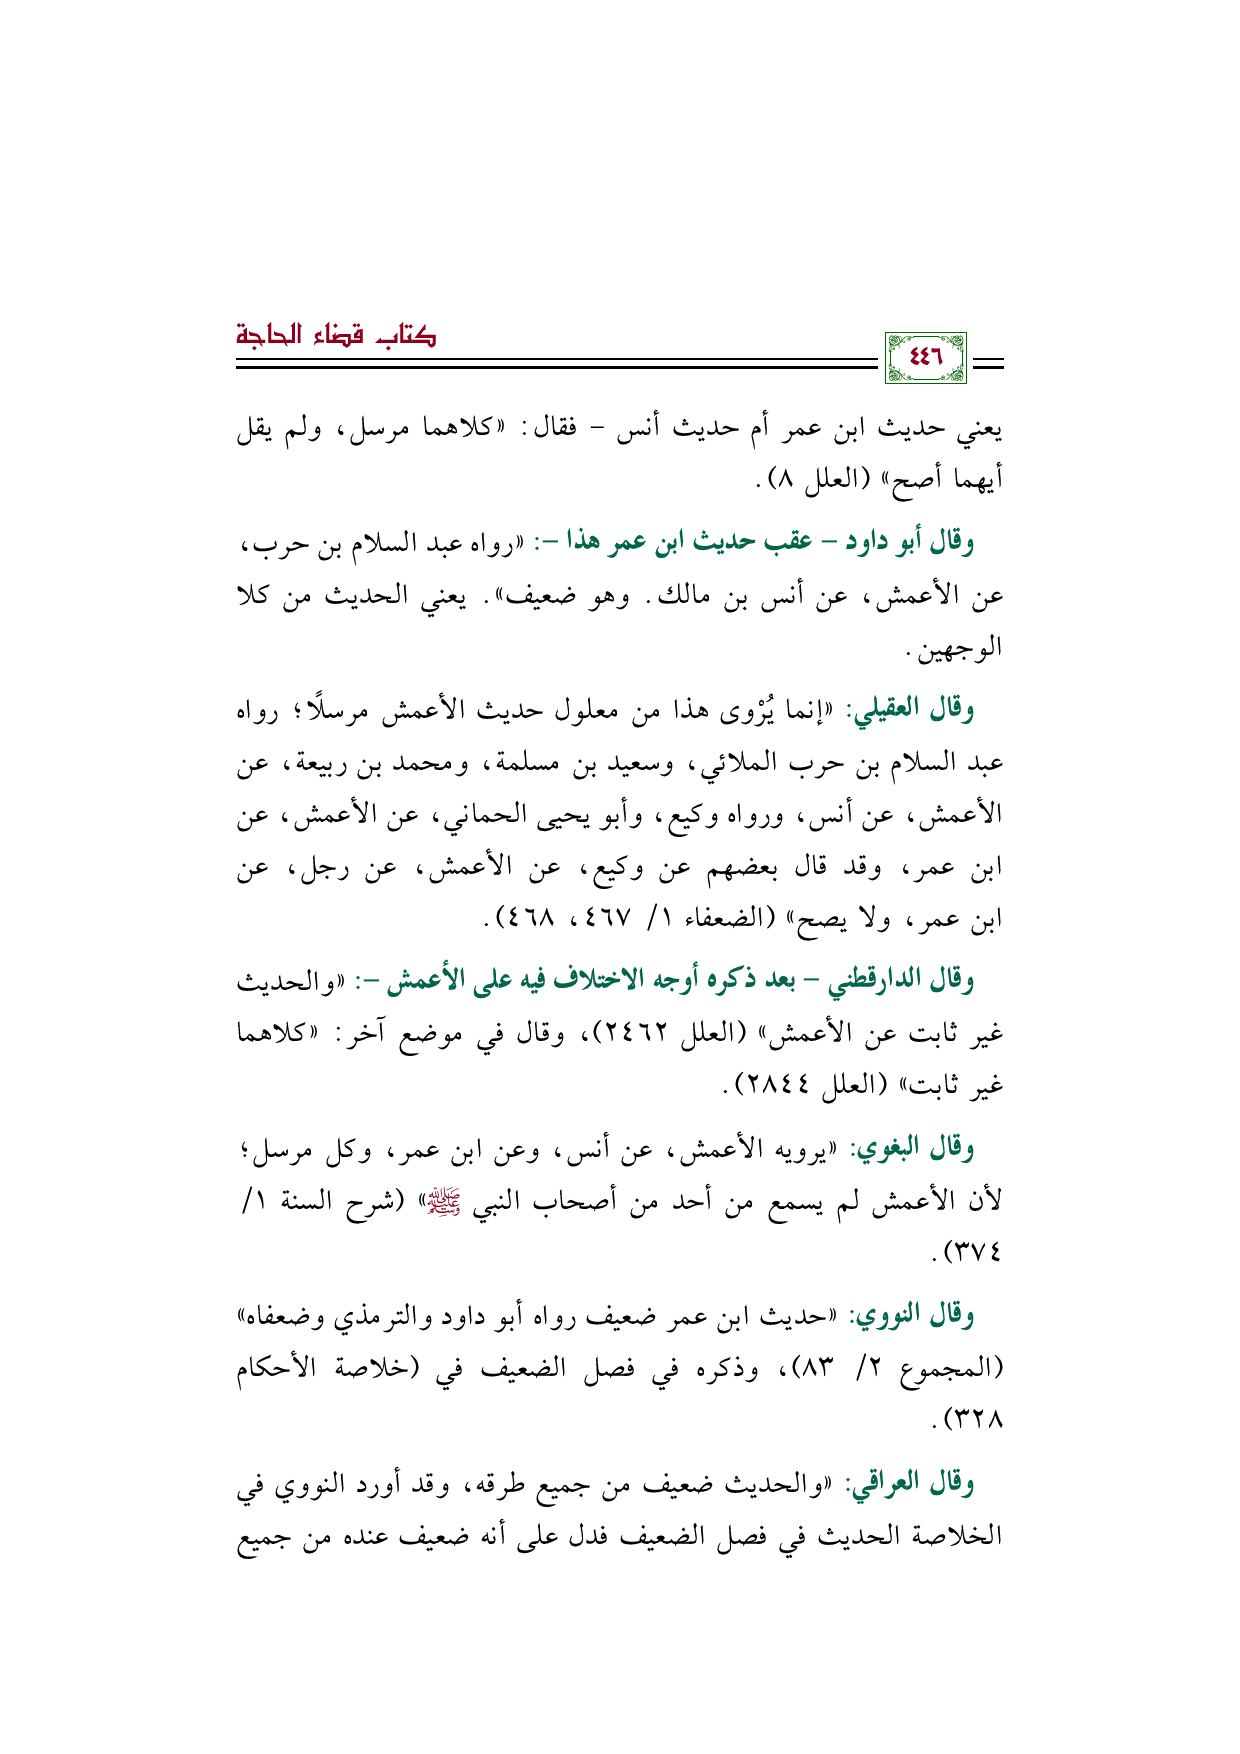 كتاب قضاء الحاجة
٤٤٦
يعني حديث ابن عمر أم حديث أنس – فقال: «كلاهما مرسل، ولم يقل
أيهما أصح» (العلل ٨).
وقال أبو داود – عقب حديث ابن عمر هذا –: «رواه عبد السلام بن حرب،
عن الأعمش، عن أنس بن مالك. وهو ضعيف». يعني الحديث من كلا
الوجهين.
وقال العقيلي: «إنما يُرْوى هذا من معلول حديث الأعمش مرسلًا؛ رواه
عبد السلام بن حرب الملائي، وسعيد بن مسلمة، ومحمد بن ربيعة، عن
الأعمش، عن أنس، ورواه وكيع، وأبو يحيى الحماني، عن الأعمش، عن
ابن عمر، وقد قال بعضهم عن وكيع، عن الأعمش، عن رجل، عن
ابن عمر، ولا يصح» (الضعفاء ١/ ٤٦٧، ٤٦٨).
وقال الدارقطني – بعد ذكره أوجه الاختلاف فيه على الأعمش –: «والحديث
غير ثابت عن الأعمش» (العلل ٢٤٦٢)، وقال في موضع آخر: «كلاهما
غير ثابت» (العلل ٢٨٤٤).
وقال البغوي: «يرويه الأعمش، عن أنس، وعن ابن عمر، وكل مرسل؛
لأن الأعمش لم يسمع من أحد من أصحاب النبي ﷺ» (شرح السنة ١/
٣٧٤).
وقال النووي: «حديث ابن عمر ضعيف رواه أبو داود والترمذي وضعفاه»
(المجموع ٢/ ٨٣)، وذكره في فصل الضعيف في (خلاصة الأحكام
٣٢٨).
وقال العراقي: «والحديث ضعيف من جميع طرقه، وقد أورد النووي في
الخلاصة الحديث في فصل الضعيف فدل على أنه ضعيف عنده من جميع